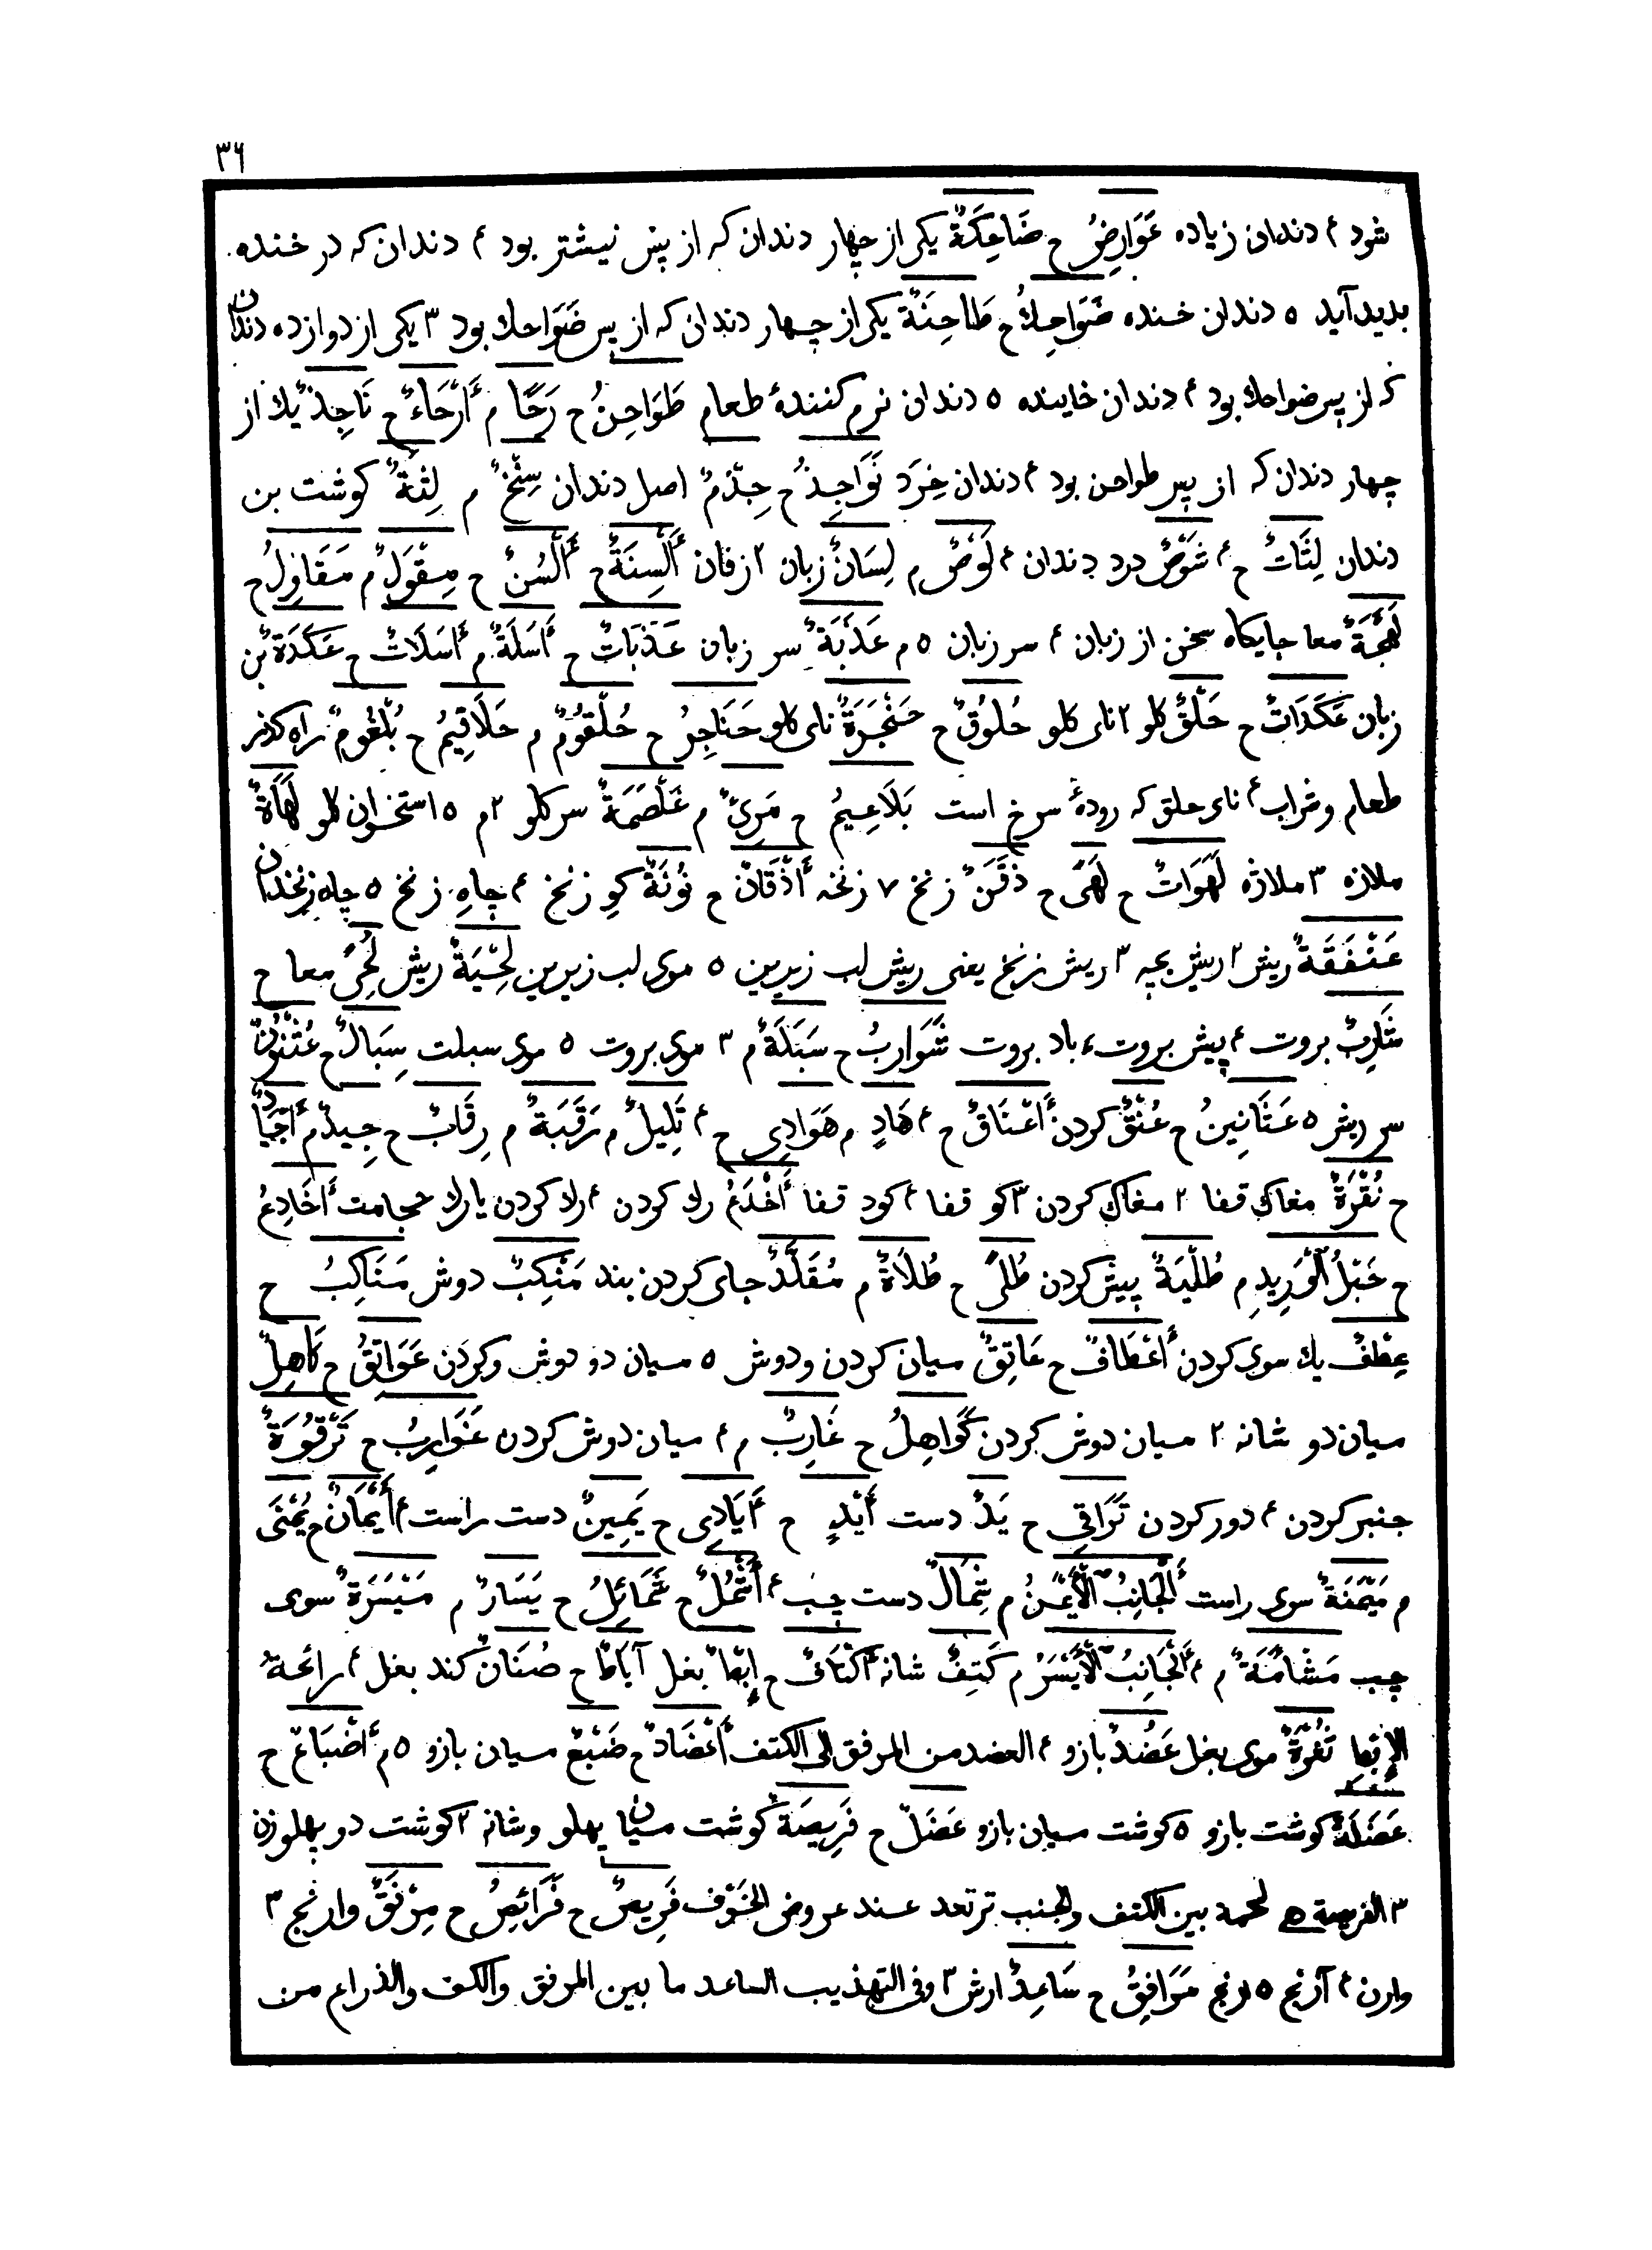 ٣٦
شود ۴ دندان زیاده عَوَارِضُ ح ضَاحِكَةٌ یکی از چهار دندان که از پش نیشتر بود ۴ دندان که در خنده
بدید آید ۵ دندان خنده ضَوَاحِكُ ح طَاحِنَةٌ یکی از چهار دندان که از پس ضَوَاحك بود ٣ یکی از دوازده دندان
که از پس ضواحك بود ۴ دندان خاینده ۵ دندان نرم کنندهٔ طعام طَوَاحِنُ ح رَحًا م أَرْحَاءٌ ح نَاجِذٌ یك از
چهار دندان که از پس طواحن بود ۴ دندان خِرَد نَوَاجِذُ ح جِذْمٌ اصل دندان سِنْخٌ م لِثَةٌ کوشت بن
دندان لِثَاتٌ ح ۴ شَوْصٌ درد دندان ۴ لَوْصٌ م لِسَانٌ زبان ٢ زفان أَلْسِنَةٌ ح أَلْسُنٌ ح مِقْوَلٌ م مَقَاوِلُ ح
لَهْجَةٌ معا جایکاه سخن از زبان ۴ سر زبان ۵ م عَذَبَةٌ سر زبان عَذَبَاتٌ ح أَسَلَةٌ م أَسَلَاتٌ ح عَكَدَةٌ بن
زبان عَكَدَاتٌ ح حَلْقٌ کلو ٢ نای کلو حُلُوقٌ ح حَنْجَرَةٌ نای کلو حَنَاجِرُ ح حُلْقُومٌ م حَلَاقِيمُ ح بُلْعُومٌ راه کذر
طعام وشراب ۴ نای حلق که رودهٔ سرخ است بَلَاعِيمُ ح مَرِيٌ م غَلْصَمَةٌ سر کلو ٢ م ۵ استخوان کلو لَهَاةٌ
ملازه ٣ ملاژه لَهَوَاتٌ ح لَهًى ح ذَقَنٌ زنخ ٧ زنخه أَذْقَانٌ ح نُونَةٌ کوِ زنخ ۴ چاهِ زنخ ۵ چاه زنخدان
عَنْفَقَةٌ ریش ٢ ریش بچه ٣ ریش زنخ یعنی ریش لب زیرین ۵ موی لب زیرین لِحْيَةٌ ریش لُحًى معا ح
شَارِبٌ بروت ۴ پیش بروت ۶ باد بروت شَوَارِبُ ح سَبَلَةٌ م ٣ موی بروت ۵ موی سبلت سِبَالٌ ح عُثْنُونٌ
سر ریش ۵ عَثَانِينُ ح عُنُقٌ کردن أَعْنَاقٌ ح ۴ هَادٍ م هَوَادِي ح ۴ تَلِيلٌ م رَقَبَةٌ م رِقَابٌ ح جِيدٌ م أَجْيَادٌ
ح نُقْرَةٌ مغاك قفا ٢ مغاك کردن ٣ کو قفا ۴ کود قفا أَخْدَعُ رك کردن ۴ رك کردن یا رك حجامت أَخَادِعُ
ح حَبْلُ ٱلْوَرِيدِ م طُلْيَةٌ پیش کردن طُلًى ح طُلَاةٌ م مُقَلَّدٌ جای کردن بند مَنْكِبٌ دوش مَنَاكِبُ ح
عِطْفٌ یك سوی کردن أَعْطَافٌ ح عَاتِقٌ میان کردن ودوش ۵ میان دو دوش وکردن عَوَاتِقُ ح كَاهِلٌ
میان دو شانه ٢ میان دوش کردن كَوَاهِلُ ح غَارِبٌ م ۴ میان دوش کردن غَوَارِبُ ح تَرْقُوَةٌ
جنبر کردن ۴ دور کردن تَرَاقِي ح يَدٌ دست أَيْدٍ ح أَيَادِي ح يَمِينٌ دست راست ۴ أَيْمَانٌ ح يُمْنَى
م مَيْمَنَةٌ سوی راست أَلْجَانِبُ ٱلْأَيْمَنُ م شِمَالٌ دست چپ ۴ أَشْمُلٌ ح شَمَائِلُ ح يَسَارٌ م مَيْسَرَةٌ سوی
چپ مَشْأَمَةٌ م ۴ أَلْجَانِبُ ٱلْأَيْسَرُ م كَتِفٌ شانه أَكْتَافٌ ح إِبْطٌ بغل آبَاطٌ ح صُنَانٌ کند بغل ۴ رائحة
الإبط ثُغْرَةٌ موی بغل عَضُدٌ بازو ۴ العضد من المرفق الى الكتف أَعْضَادٌ ح ضَبْعٌ میان بازو ۵ م أَضْبَاعٌ ح
عَضَلَةٌ کوشت بازو ۵ کوشت میان بازو عَضَلٌ ح فَرِيصَةٌ کوشت میان پهلو وشانه ٢ کوشت دو پهلو زن
٣ الفريصة لحمة بين الكتف والجنب ترتعد عند عروض الخَوْف فَرِيصٌ ح فَرَائِصُ ح مِرْفَقٌ وارنج ٣
وارن ۴ آرنج ۵ رنج مَرَافِقُ ح سَاعِدٌ ارش ٣ وفى التهذيب الساعد ما بين المرفق والكف والذراع من